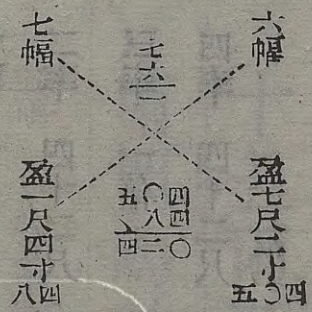 六幅
盈七尺二寸
五〇四
七六一
五〇四
丶八四
四二〇
七幅
盈一尺四寸
八四